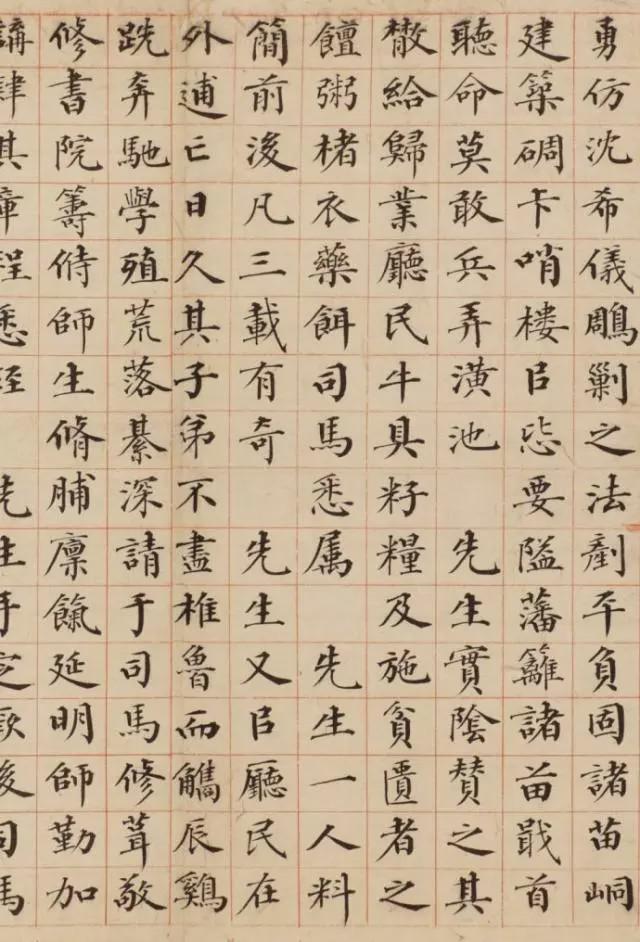 勇仿沈希儀鵰剿之法剷平負固諸苗峒
建築碉卡哨楼㠯毖要隘藩籬諸苗戢首
聽命莫敢兵弄潢池 先生實陰贊之其
散給歸業廳民牛具籽糧及施貧匱者之
饘粥楮衣藥餌司馬悉属 先生一人料
簡前後凡三載有奇 先生又㠯廳民在
外逋亡日久其子弟不盡椎魯而觿辰鷄
跣奔馳學殖荒落綦深請于司馬修葺敬
修書院籌偫師生脩脯廪餼延明師勤加
講肄其章程悉經 先生手定厥後司馬